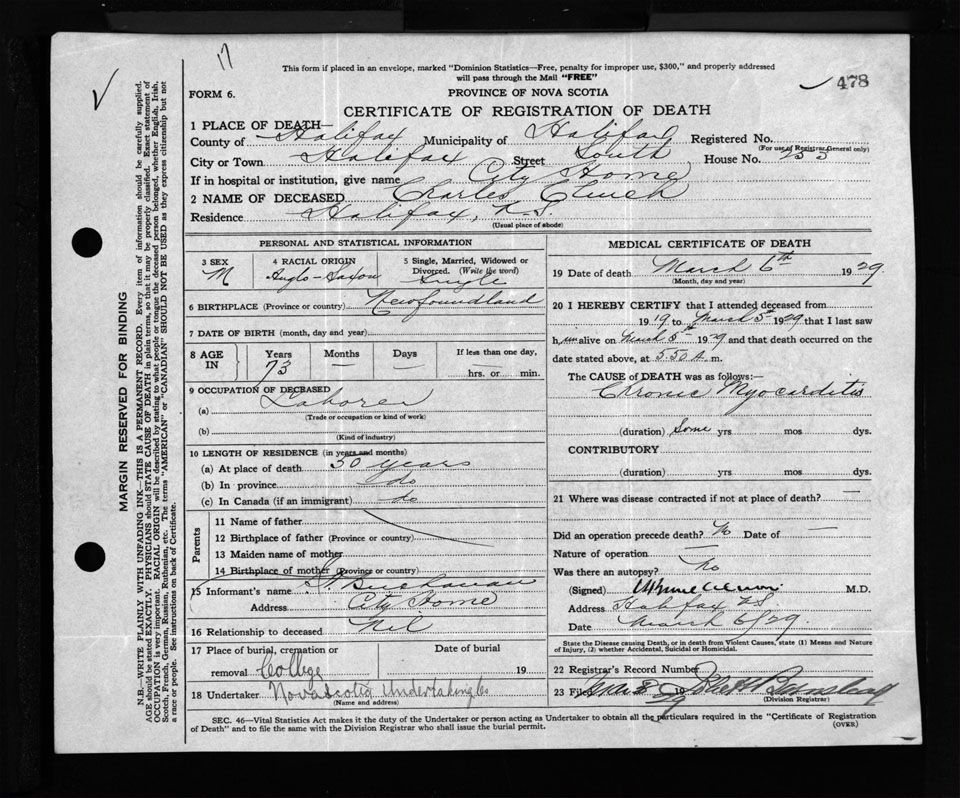 17
This form if placed in an envelope, marked "Dominion Statistics—Free, penalty for improper use, $300," and properly addressed
will pass through the Mail "FREE"
478
FORM 6.
PROVINCE OF NOVA SCOTIA
CERTIFICATE OF REGISTRATION OF DEATH
1 PLACE OF DEATH—
County of Halifax Municipality of Halifax Registered No.
(For use of Registrar General only)
City or Town Halifax Street South House No.
If in hospital or institution, give name City Home
2 NAME OF DECEASED Charles
Residence Halifax, N.S.
(Usual place of abode)
PERSONAL AND STATISTICAL INFORMATION
3 SEX
M
4 RACIAL ORIGIN
Anglo-Saxon
5 Single, Married, Widowed or
Divorced. (Write the word)
Single
6 BIRTHPLACE (Province or country) Newfoundland
7 DATE OF BIRTH (month, day and year)
8 AGE IN
Years
73
Months
—
Days
If less than one day,
hrs. or min.
9 OCCUPATION OF DECEASED
(a) Laborer
(Trade or occupation or kind of work)
(b)
(Kind of industry)
10 LENGTH OF RESIDENCE (in years and months)
(a) At place of death 50 years
(b) In province do
(c) In Canada (if an immigrant) do
Parents
11 Name of father
12 Birthplace of father (Province or country)
13 Maiden name of mother
14 Birthplace of mother (Province or country)
15 Informant's name Buchanan
Address City Home
16 Relationship to deceased Nil
17 Place of burial, cremation or
removal College
Date of burial
19
18 Undertaker Nova Scotia Undertaking Co
(Name and address)
MEDICAL CERTIFICATE OF DEATH
19 Date of death March 6th 1929
(Month, day and year)
20 I HEREBY CERTIFY that I attended deceased from
1919 to March 5th 1929 that I last saw
h im alive on March 5th 1929 and that death occurred on the
date stated above, at 5.30 A. m.
The CAUSE of DEATH was as follows:
Chronic Myocarditis
(duration) Some yrs mos dys.
CONTRIBUTORY
(duration) yrs mos dys.
21 Where was disease contracted if not at place of death? —
Did an operation precede death? No Date of —
Nature of operation —
Was there an autopsy? No
(Signed) M.D.
Address Halifax NS
Date March 6/29
State the Disease causing Death, or in death from Violent Causes, state (1) Means and Nature
of Injury, (2) whether Accidental, Suicidal or Homicidal.
22 Registrar's Record Number
23 Filed 19
(Division Registrar)
SEC. 46—Vital Statistics Act makes it the duty of the Undertaker or person acting as Undertaker to obtain all the particulars required in the "Certificate of Registration
of Death" and to file the same with the Division Registrar who shall issue the burial permit.
(OVER)
MARGIN RESERVED FOR BINDING
N.B.—WRITE PLAINLY WITH UNFADING INK—THIS IS A PERMANENT RECORD. Every item of information should be carefully supplied.
AGE should be stated EXACTLY. PHYSICIANS should STATE CAUSE OF DEATH in plain terms, so that it may be properly classified. Exact statement of
OCCUPATION is very important. RACIAL ORIGIN will be described by stating to what people or tongue the deceased person belonged, whether English, Irish,
Scotch, French, German, Russian, Ruthenian, etc. The terms "AMERICAN" or "CANADIAN" SHOULD NOT BE USED as they express citizenship but not
a race or people. See instructions on back of Certificate.